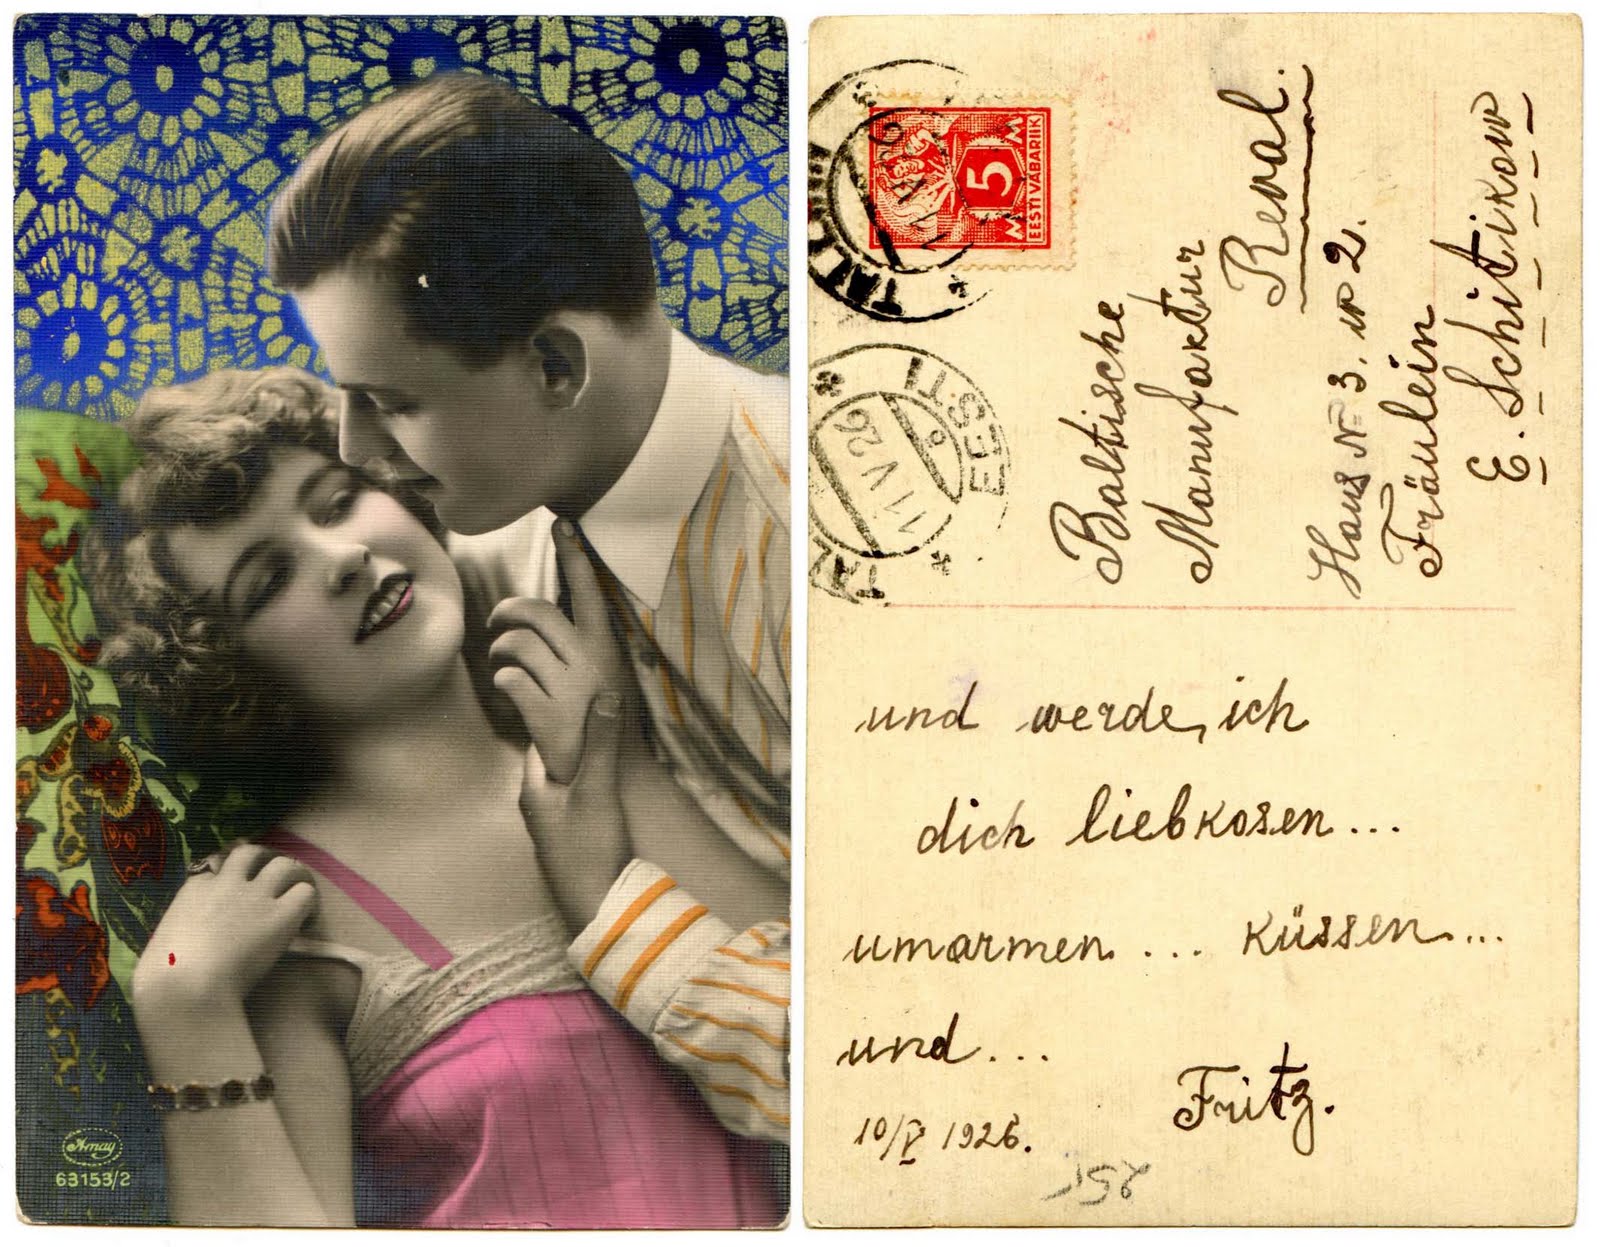 Amag
63153/2
TALLINN
11 V 26
5
M M
EESTI VABARIIK
EESTI
11 V 26
Baltische
Manufaktur
Reval.
Haus № 3. w 2.
Fräulein
E. Schitikow
und werde, ich
dich liebkosen...
umarmen... küssen...
und...
Fritz.
10/V 1926.